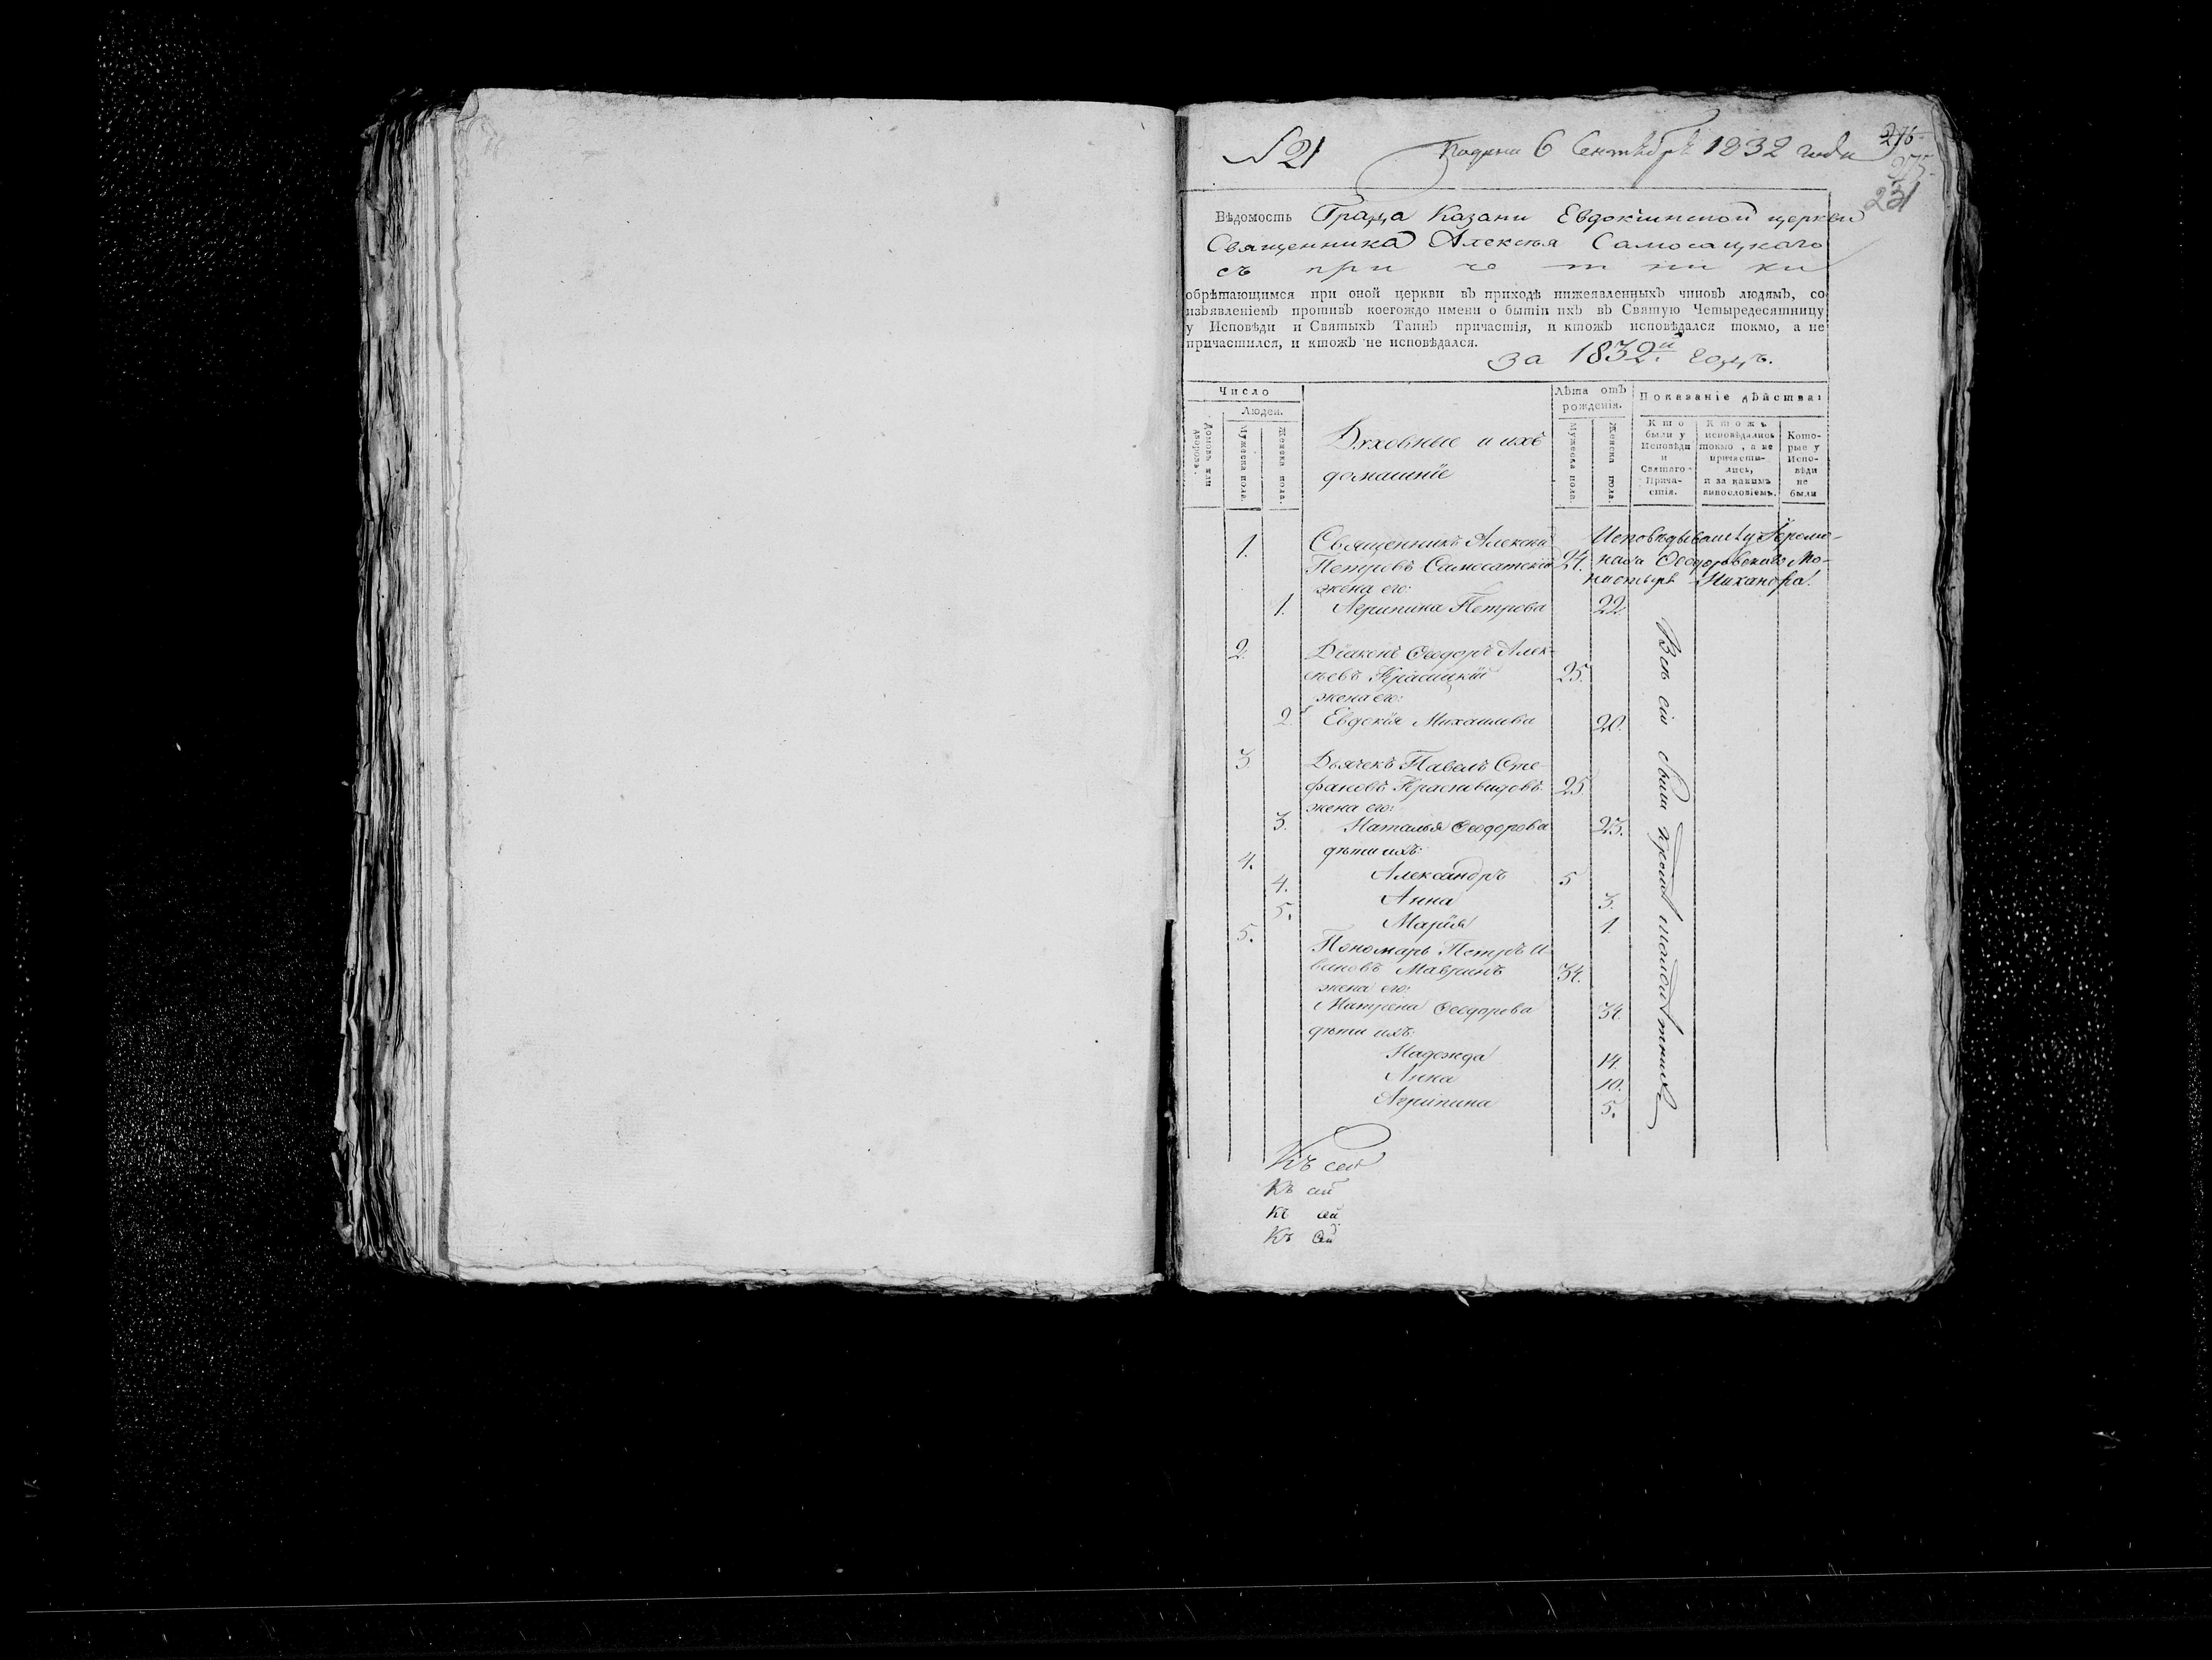 № 21
Подана 6 Сентября 1832 года
276
275
231
Вѣдомость Града Казани Евдокіинской церкви
Священника Алексѣя Самосацкаго
съ причетники
обрѣтающимся при оной церкви въ приходѣ нижеявленныхъ чиновъ людямъ, со
изъявленіемъ противъ коегождо имени о бытіи ихъ въ Святую Четыредесятницу
у Исповѣди и Святыхъ Таинъ причастія, и ктожъ исповѣдался токмо, а не
причастился, и ктожъ не исповѣдался.
за 1832й годъ.
Число
Людей.
Домовъ или дворовъ.
Мужеска пола.
Женска пола.
Духовные и ихъ
домашніе
Лѣта отъ
рожденія.
Мужеска пола.
Женска пола.
Показаніе дѣйства:
Кто
были у
Исповѣди
и
Святаго
Прича-
стія.
Ктожъ
исповѣдались
токмо, а не
причасти-
лись,
и за какимъ
винословіемъ.
Кото-
рые у
Испо-
вѣди
не
были
1. Священникъ Алексій
Петровъ Самосатскій 24.
Исповѣдывался у Іеромо-
наха Ѳеодоровскаго Мо-
настыря Никанора.
жена его:
1. Агрипина Петрова 22.
2. Діаконъ Ѳеодоръ Алек-
сѣевъ Красицкій 25.
жена его:
2. Евдокія Михаилова 20.
3. Дьячекъ Павелъ Сте
фановъ Красновидовъ 25
жена его:
3. Наталья Ѳеодорова 23.
дѣти ихъ:
4. Александръ 5
4. Анна 3.
5. Марія 1.
5. Пономарь Петръ И-
вановъ Мавринъ 34.
жена его:
Матрена Ѳеодорова 34.
дѣти ихъ:
Надежда 14.
Анна 10.
Агрипина 5.
Всѣ сіи были кромѣ
Къ сей
Къ сей
Къ сей
Къ сей